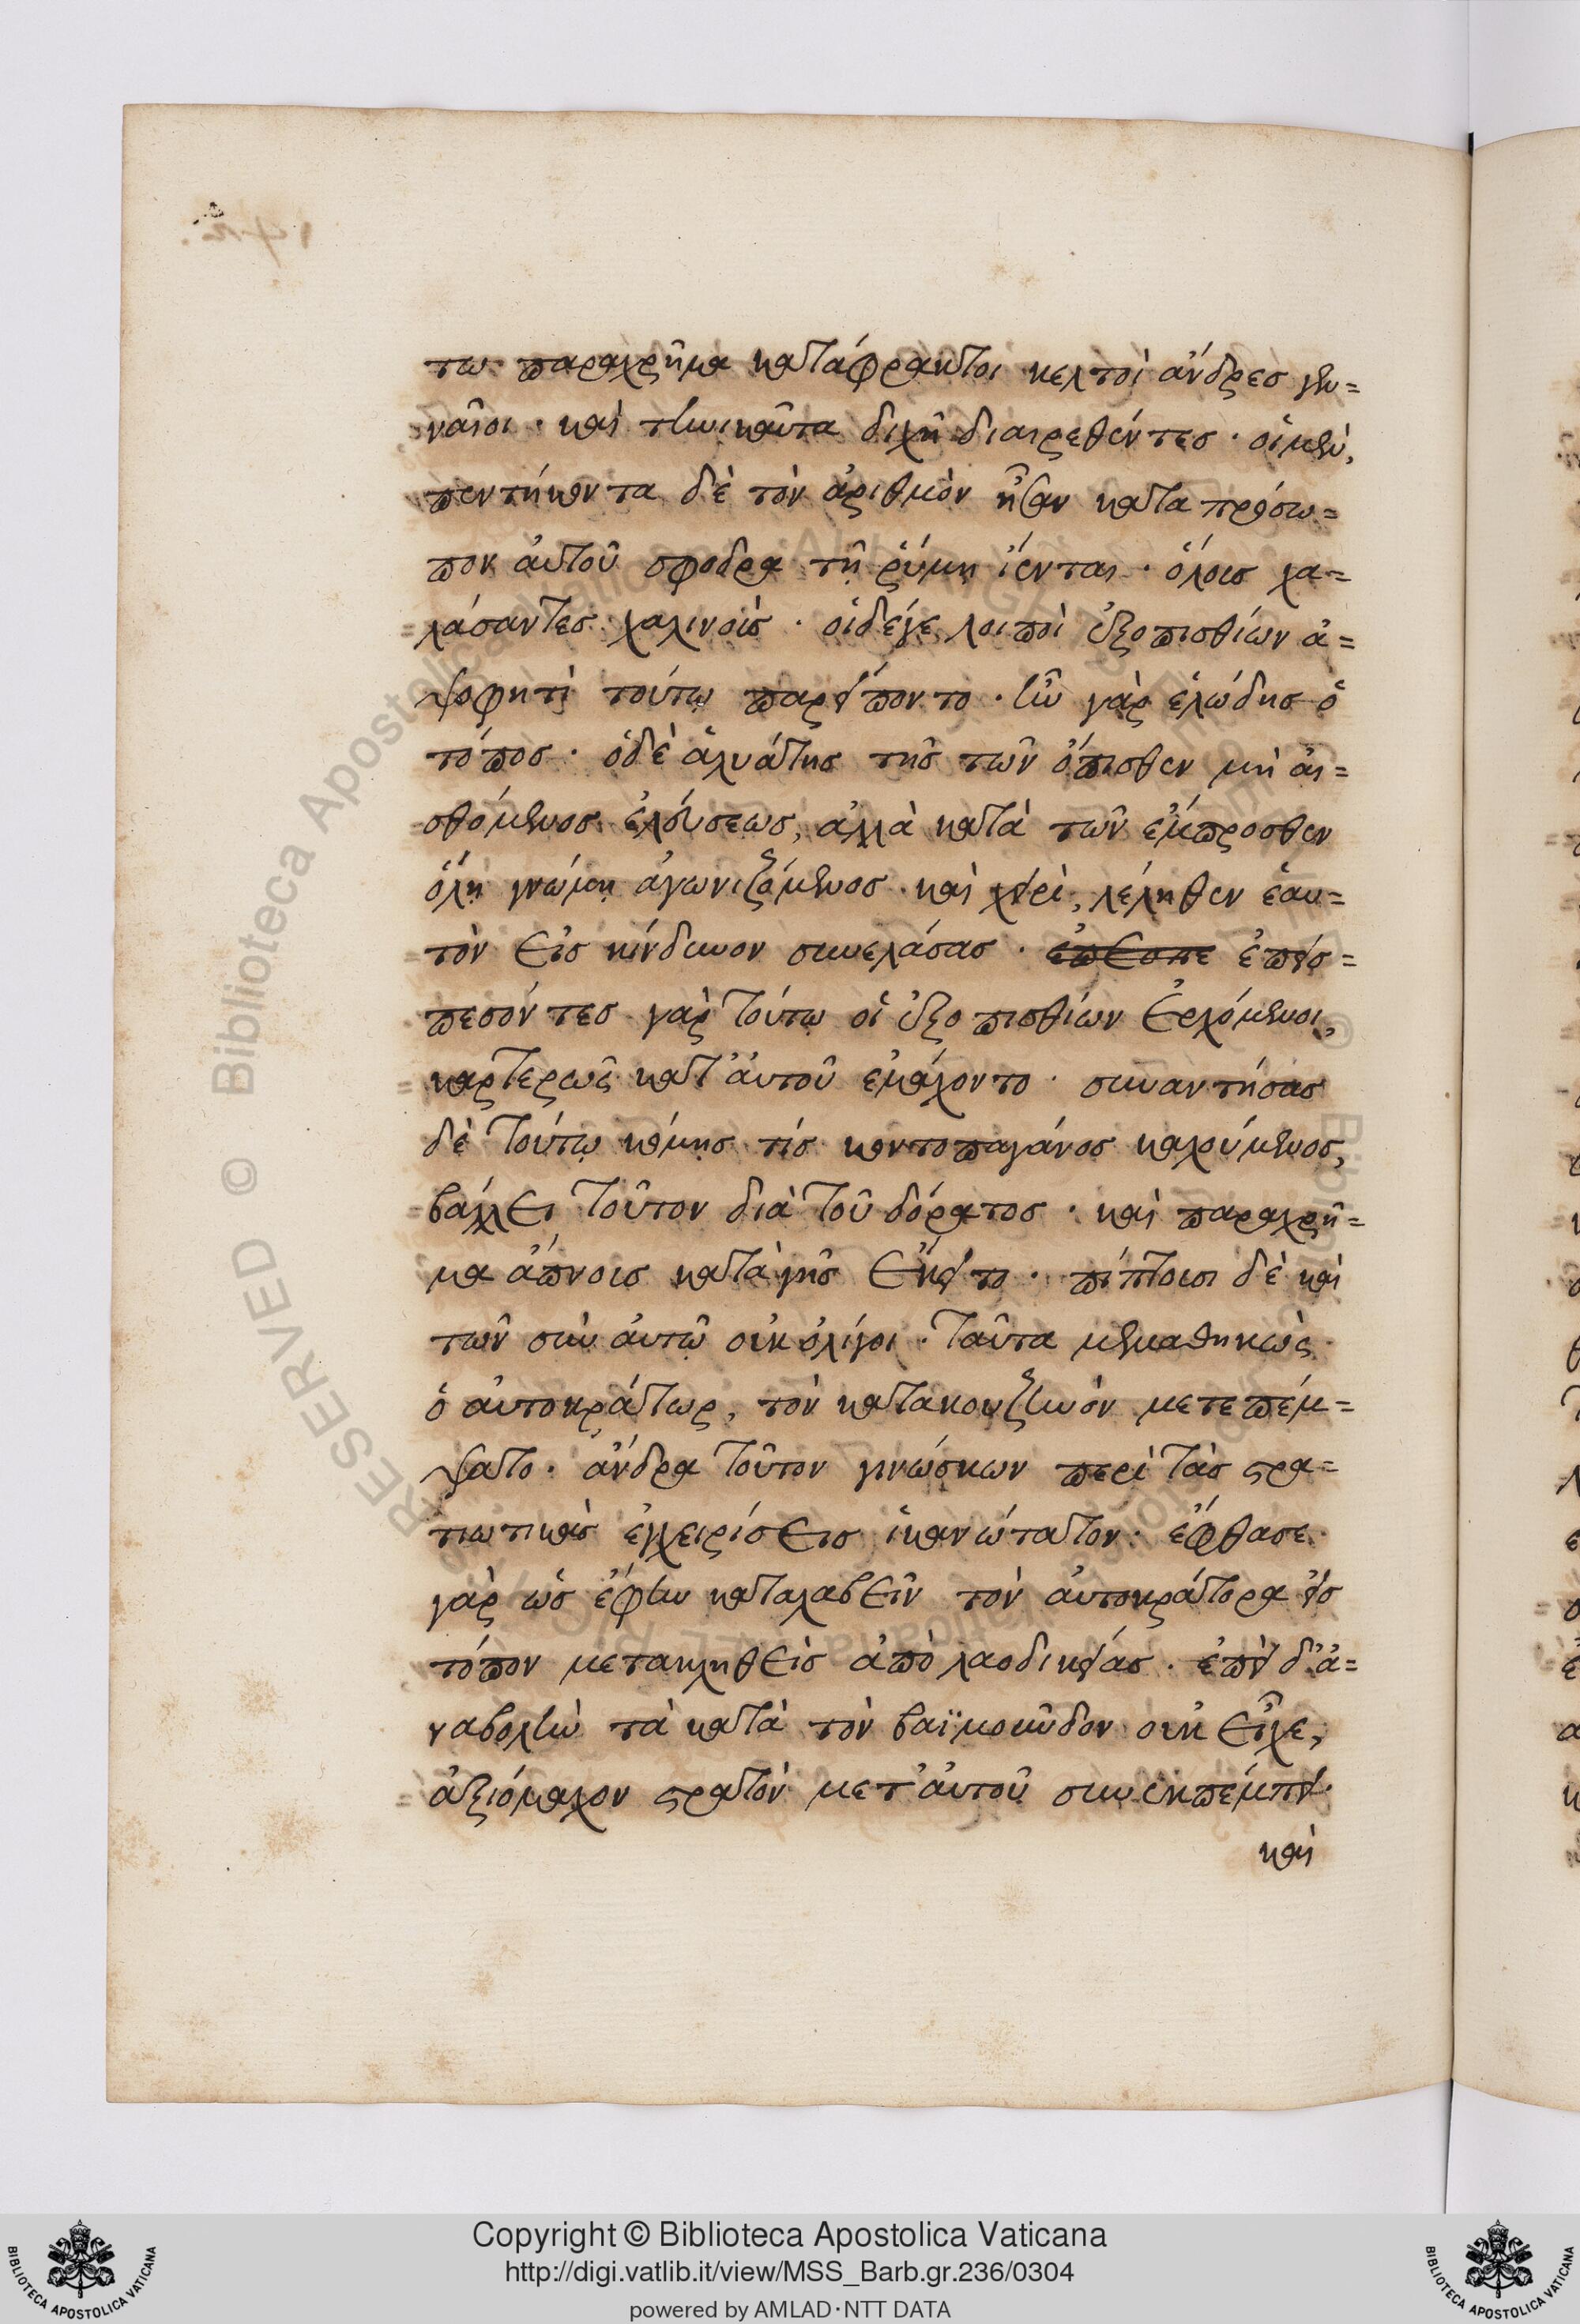 τω παραχρῆμα κατάφρακτοι κελτοὶ ἄνδρες γεν=
ναῖοι · καὶ τηνικαῦτα διχῆ διαιρεθέντες · οἱ μὲν,
πεντήκοντα δὲ τὸν ἀριθμὸν ἦσαν κατα πρόσω=
πον ἀυτοῦ σφοδρα τῆ ῥύμη ἵενται · ὅλους χα=
λάσαντες χαλινούς · οἱ δέγε λοιποὶ ἐξοπισθίων ἀ=
ψοφητὶ τούτω παρείποντο · ἦν γὰρ ἑλώδης ὁ
τόπος · ὁ δὲ ἀλυάτης τῆς τῶν ὄπισθεν μὴ ἀι=
σθόμενος ἐλεύσεως, ἀλλὰ κατὰ τῶν ἔμπροσθεν
ὅλη γνώμη ἀγωνιζόμενος καὶ χειρὶ, λέληθεν ἑαυ=
τὸν εἰς κίνδυνον συνελάσας · ἐπεσπε ἐπεισ=
πεσόντες γὰρ τούτω οἱ ἐξοπισθίων ἐρχόμενοι,
καρτερῶς κατ' ἀυτοῦ ἐμάχοντο · συναντήσας
δὲ τούτω κόμης τίς κοντοπαγάνος καλούμενος,
βάλλει τοῦτον διὰ τοῦ δόρατος · καὶ παραχρῆ=
μα ἄπνους κατὰ γῆς ἔκειτο · πίπτουσι δὲ καὶ
τῶν σὺν ἀυτῶ οὐκ ὀλίγοι · ταῦτα μεμαθηκὼς
ὁ ἀυτοκράτωρ, τὸν κατακουζηνὸν μετεπέμ=
ψατο · ἄνδρα τοῦτον γινώσκων περὶ τὰς στρα=
τιωτικὰς ἐγχειρίσεις ἱκανώτατον · ἔφθασε
γὰρ ὡς ἔφην καταλαβεῖν τὸν ἀυτοκράτορα εἰς
τόπον μετακληθεὶς ἀπὸ λαοδικείας · ἐπεὶ δ' ἀ=
ναβολὴν τὰ κατὰ τὸν βαϊμοῦνδον οὐκ εἶχε,
ἀξιόμαχον στρατὸν μετ' ἀυτοῦ συνεκπέμπει ·
καὶ
Copyright © Biblioteca Apostolica Vaticana
http://digi.vatlib.it/view/MSS_Barb.gr.236/0304
powered by AMLAD·NTT DATA